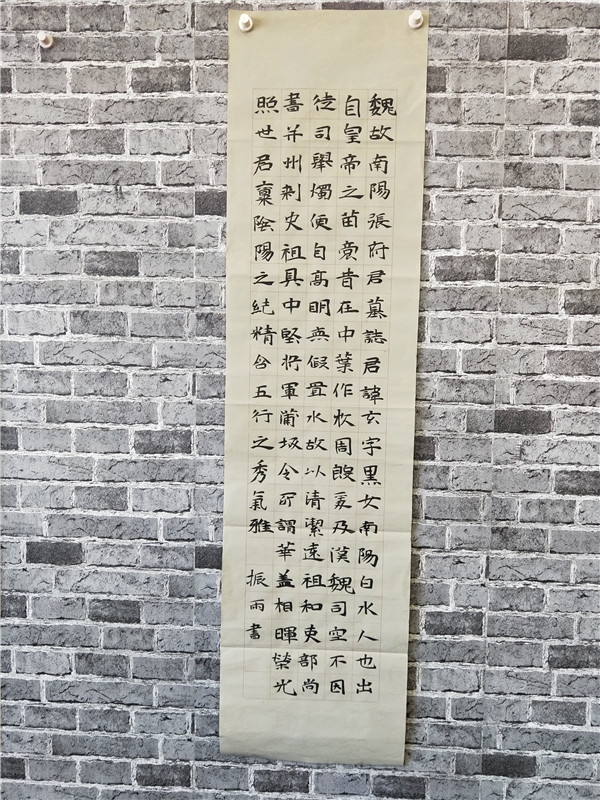 魏故南陽張府君墓誌君諱玄字黑女南陽白水人也出
自皇帝之苗裔昔在中葉作牧周殷爰及漢魏司空不因
徒司舉燭便自高明無假置水故以清潔遠祖和吏部尚
書并州刺史祖具中堅將軍蒲坂令所謂華蓋相暉榮光
照世君稟陰陽之純精含五行之秀氣雅
振雨書